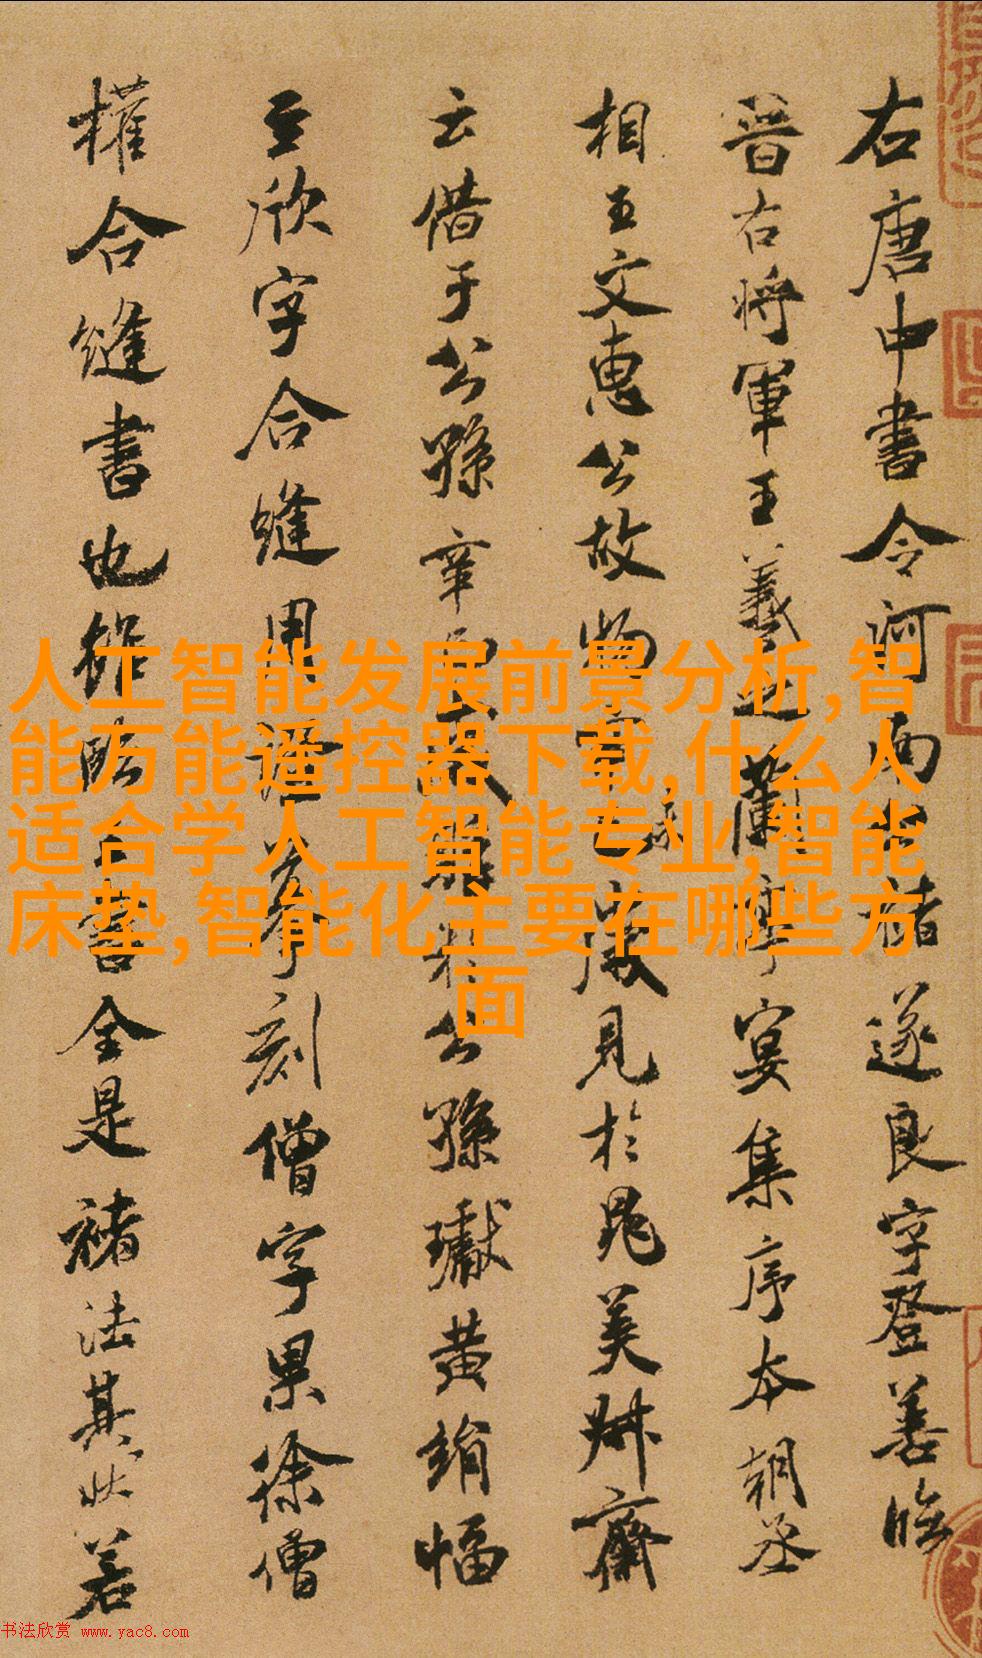 右唐中書令河南褚遂良字登善臨
晉右將軍王羲之蘭亭宴集序本朝丞
相王文惠公故物辛巳歲見於晁美叔齋
云借于公孫章
公孫瓛黄絹幅
至欣字合縫用證摹刻僧字果徐僧
權合縫書也雖臨王書全是褚法其狀若
人工智能发展前景分析,智
能万能遥控器下载,什么人
适合学人工智能专业,智能
床垫,智能化主要在哪些方
面
书法欣赏 www.yac8.com